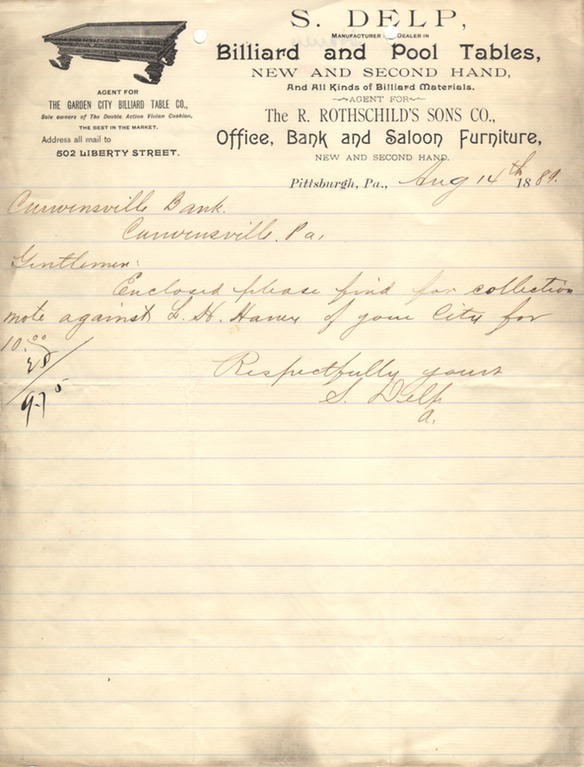 S. DELP,
MANUFACTURER DEALER IN
Billiard and Pool Tables,
NEW AND SECOND HAND,
And All Kinds of Billiard Materials.
AGENT FOR
The R. ROTHSCHILD'S SONS CO.,
Office, Bank and Saloon Furniture,
NEW AND SECOND HAND.
AGENT FOR
THE GARDEN CITY BILLIARD TABLE CO.,
Sole owners of The Double Action Vivian Cushion,
THE BEST IN THE MARKET.
Address all mail to
502 LIBERTY STREET.
Pittsburgh, Pa., Aug 14th 1889.
Curwensville Bank.
Curwensville. Pa,
Gentlemen:
Enclosed please find for collection
note against L. H. of your City for
10.00
25
9.75
Respectfully yours
S. Delp
a.